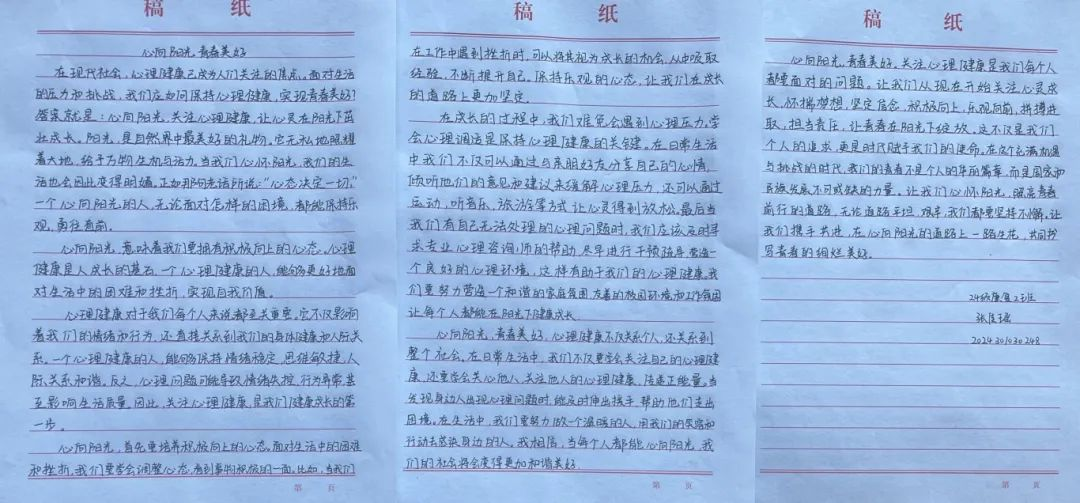 稿 纸
心向阳光,青春美好
在现代社会,心理健康已成为人们关注的焦点。面对生活
的压力和挑战,我们应如何保持心理健康,实现青春美好?
答案就是:心向阳光,关注心理健康,让心灵在阳光下茁
壮成长。阳光,是自然界中最美好的礼物。它无私地照耀
着大地,给予万物生机与活力。当我们心怀阳光,我们的生
活也会因此变得明媚。正如那句老话所说:“心态决定一切。”
一个心向阳光的人,无论面对怎样的困境,都能保持乐
观,勇往直前。
心向阳光,意味着我们要拥有积极向上的心态。心理
健康是人成长的基石。一个心理健康的人,能够更好地面
对生活中的困难和挫折,实现自我价值。
心理健康对于我们每个人来说都至关重要。它不仅影响
着我们的情绪和行为,还直接关系到我们的身体健康和人际关
系。一个心理健康的人,能够保持情绪稳定,思维敏捷,人
际关系和谐。反之,心理问题可能导致情绪失控,行为异常,甚
至影响生活质量。因此,关注心理健康,是我们健康成长的第
一步。
心向阳光,首先要培养积极向上的心态。面对生活中的困难
和挫折,我们要学会调整心态,看到事物积极的一面。比如,当我们
第 页
稿 纸
在工作中遇到挫折时,可以将其视为成长的机会,从中吸取
经验,不断提升自己。保持乐观的心态,让我们在成长
的道路上更加坚定。
在成长的过程中,我们难免会遇到心理压力。学
会心理调适是保持心理健康的关键。在日常生活
中我们不仅可以通过与亲朋好友分享自己的心情,
倾听他们的意见和建议来缓解心理压力,还可以通过
运动,听音乐,旅游等方式让心灵得到放松。最后当
我们有自己无法处理的心理问题时,我们应该及时寻
求专业心理咨询师的帮助,尽早进行干预疏导。营造一
个良好的心理环境,这样有助于我们的心理健康。我
们要努力营造一个和谐的家庭氛围,友善的校园环境和工作氛围
让每个人都能在阳光下健康成长。
心向阳光,青春美好。心理健康不仅关系个人,还关系到
整个社会。在日常生活中,我们不仅要学会关注自己的心理健
康,还要学会关心他人,关注他人的心理健康,传递正能量。当
发现身边人出现心理问题时,能及时伸出援手,帮助他们走出
困境。在生活中,我们要努力做一个温暖的人,用我们的笑容和
行动去感染身边的人。我相信,当每个人都能心向阳光,我
们的社会将会变得更加和谐美好。
第 页
稿 纸
心向阳光,青春美好。关注心理健康是我们每个人
都要面对的问题。让我们从现在开始关注心灵成
长,怀揣梦想,坚定信念,积极向上,乐观向前,拼搏进
取,担当责任,让青春在阳光下绽放。这不仅是我们
个人的追求,更是时代赋予我们的使命。在这个充满机遇
与挑战的时代,我们的青春不是个人的华丽篇章,而是国家和
民族发展不可或缺的力量。让我们心怀阳光,照亮青春
前行的道路,无论道路平坦、艰辛,我们都要坚持不懈。让
我们携手共进,在心向阳光的道路上一路生花,共同书
写青春的绚烂美好。
24级康复2班
2024301030248
第 页